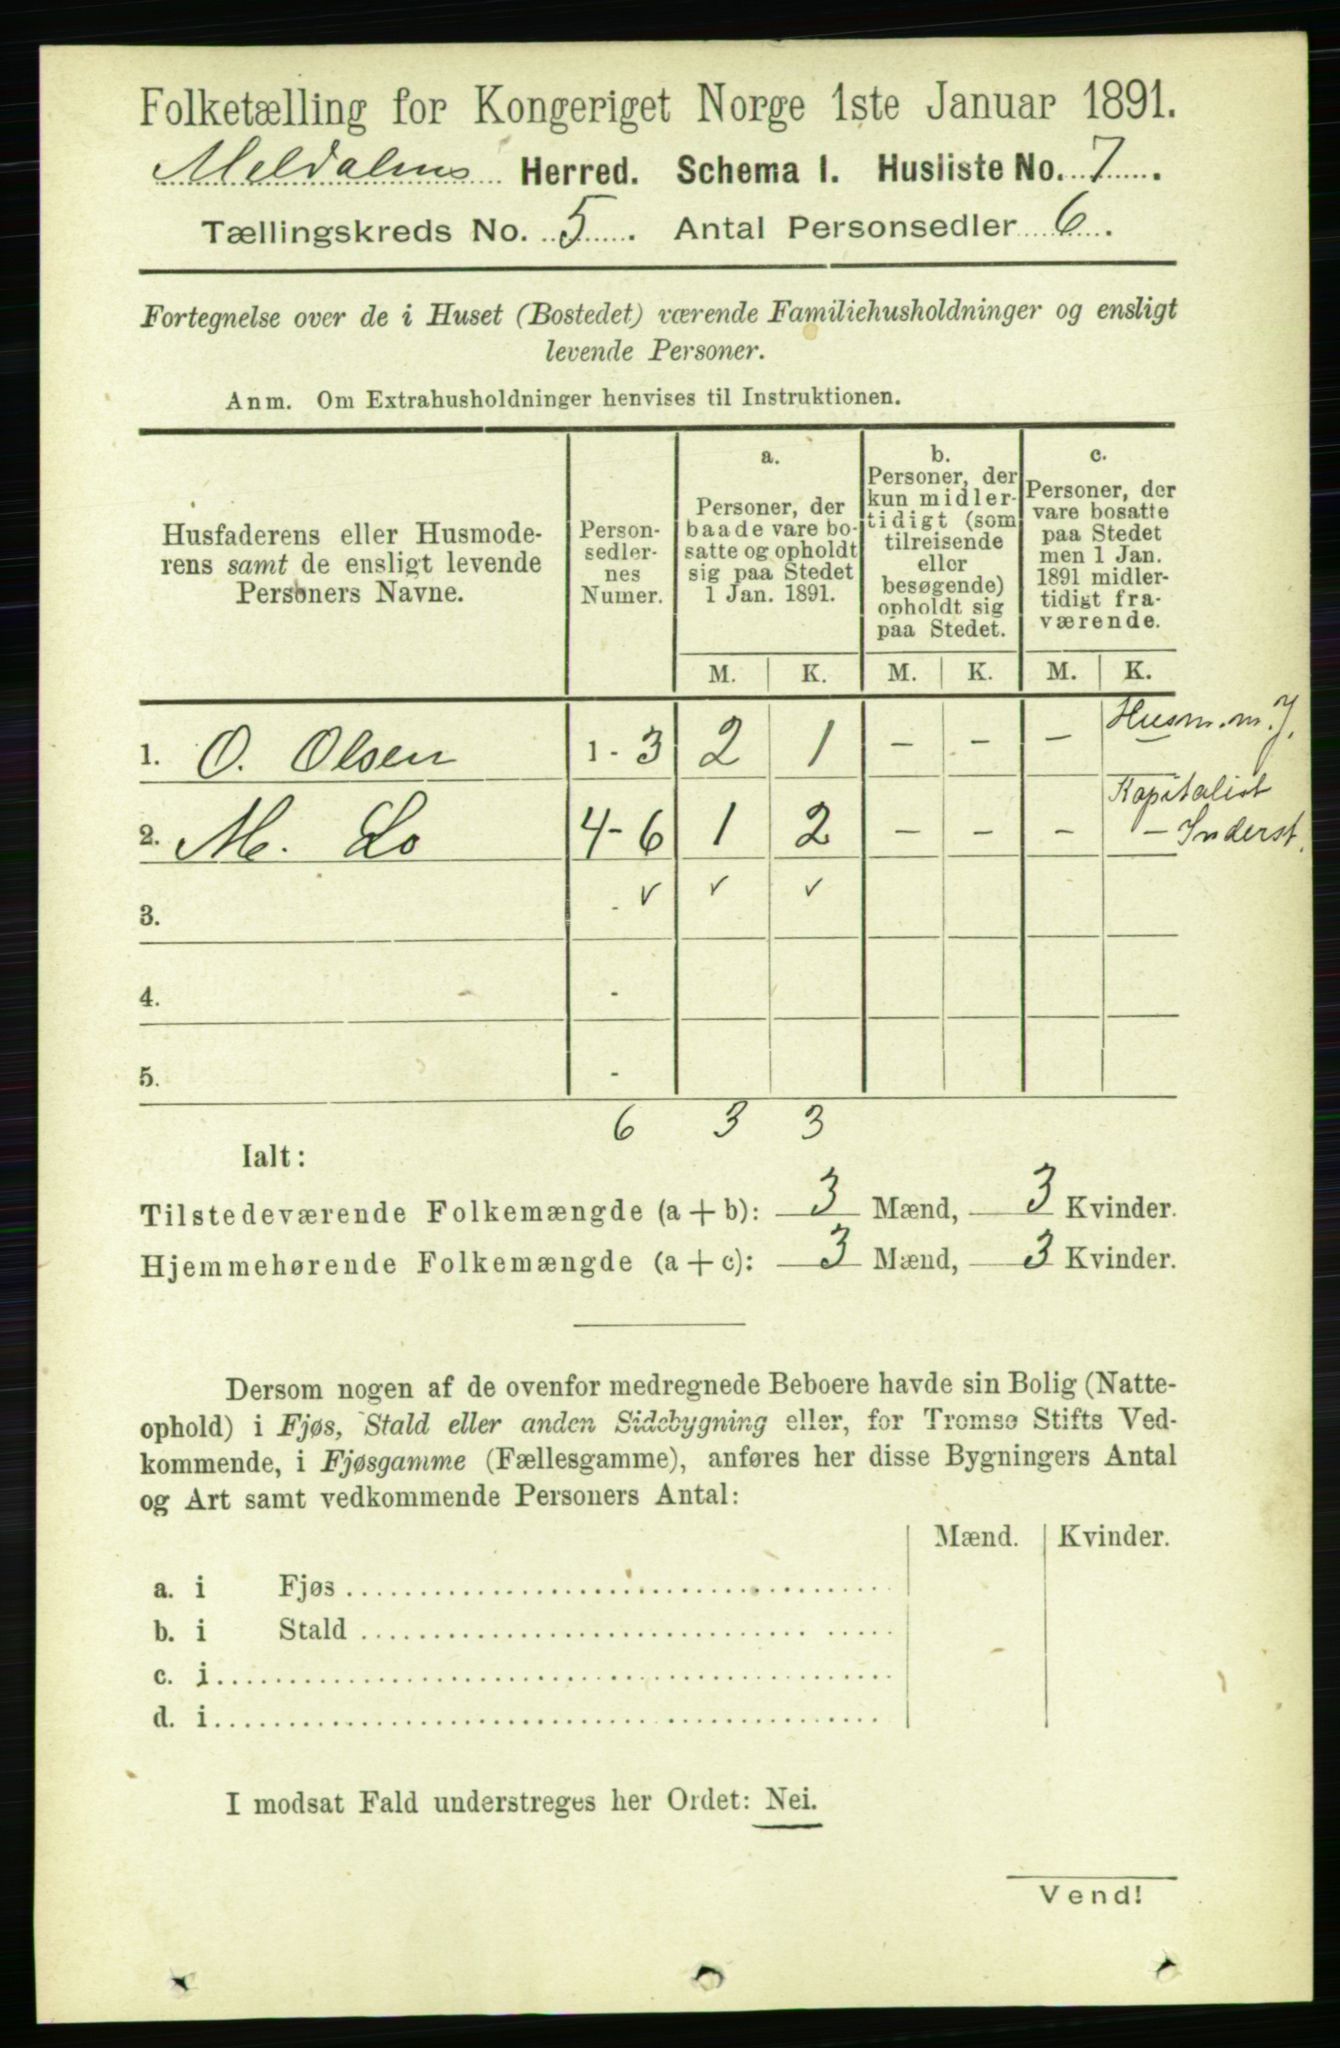 Folketælling for Kongeriget Norge 1ste Januar 1891.
Meldalens Herred. Schema 1. Husliste No. 7.
Tællingskreds No. 5. Antal Personsedler 6.
Fortegnelse over de i Huset (Bostedet) værende Familiehusholdninger og ensligt
levende Personer.
Anm. Om Extrahusholdninger henvises til Instruktionen.
Husfaderens eller Husmode-
rens samt de ensligt levende
Personers Navne.
Person-
sedler-
nes
Numer.
a.
Personer, der
baade vare bo-
satte og opholdt
sig paa Stedet
1 Jan. 1891.
b.
Personer, der
kun midler-
tidigt (som
tilreisende
eller
besøgende)
opholdt sig
paa Stedet.
c.
Personer, der
vare bosatte
paa Stedet
men 1 Jan.
1891 midler-
tidigt fra-
værende.
M. K. M. K. M. K.
1. O. Olsen 1-3 2 1 - - - Husm. m. J.
2. M. Lo 4-6 1 2 - - - Kapitalist
- Inderst.
3.
4.
5.
6 3 3
Ialt:
Tilstedeværende Folkemængde (a + b): 3 Mænd, 3 Kvinder.
Hjemmehørende Folkemængde (a + c): 3 Mænd, 3 Kvinder.
Dersom nogen af de ovenfor medregnede Beboere havde sin Bolig (Natte-
ophold) i Fjøs, Stald eller anden Sidebygning eller, for Tromsø Stifts Ved-
kommende, i Fjøsgamme (Fællesgamme), anføres her disse Bygningers Antal
og Art samt vedkommende Personers Antal:
Mænd. Kvinder.
a. i Fjøs
b. i Stald
c. i
d. i
I modsat Fald understreges her Ordet: Nei.
Vend!